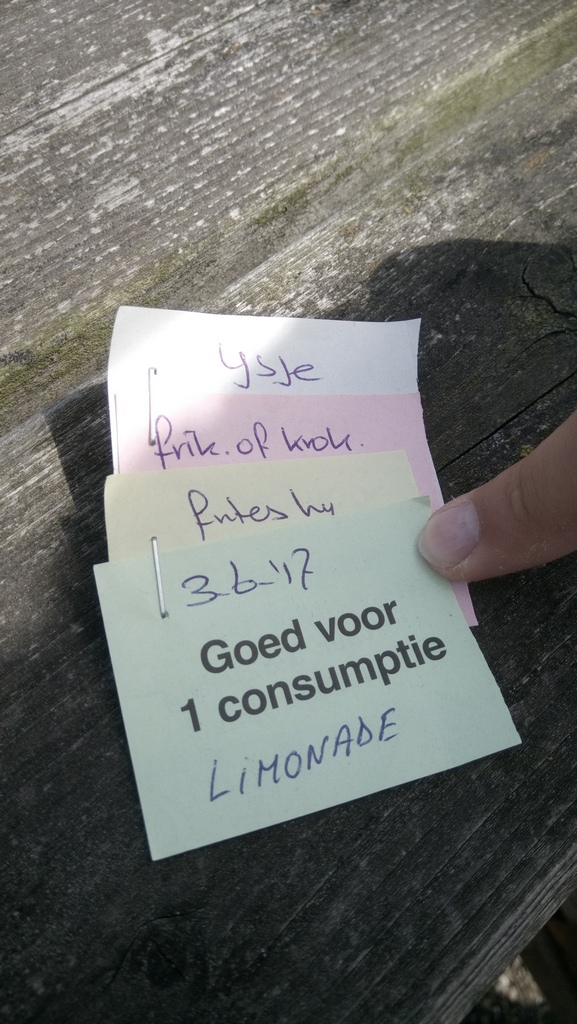 ysje
frik. of krok.
frites
3-6-'17
Goed voor
1 consumptie
LIMONADE